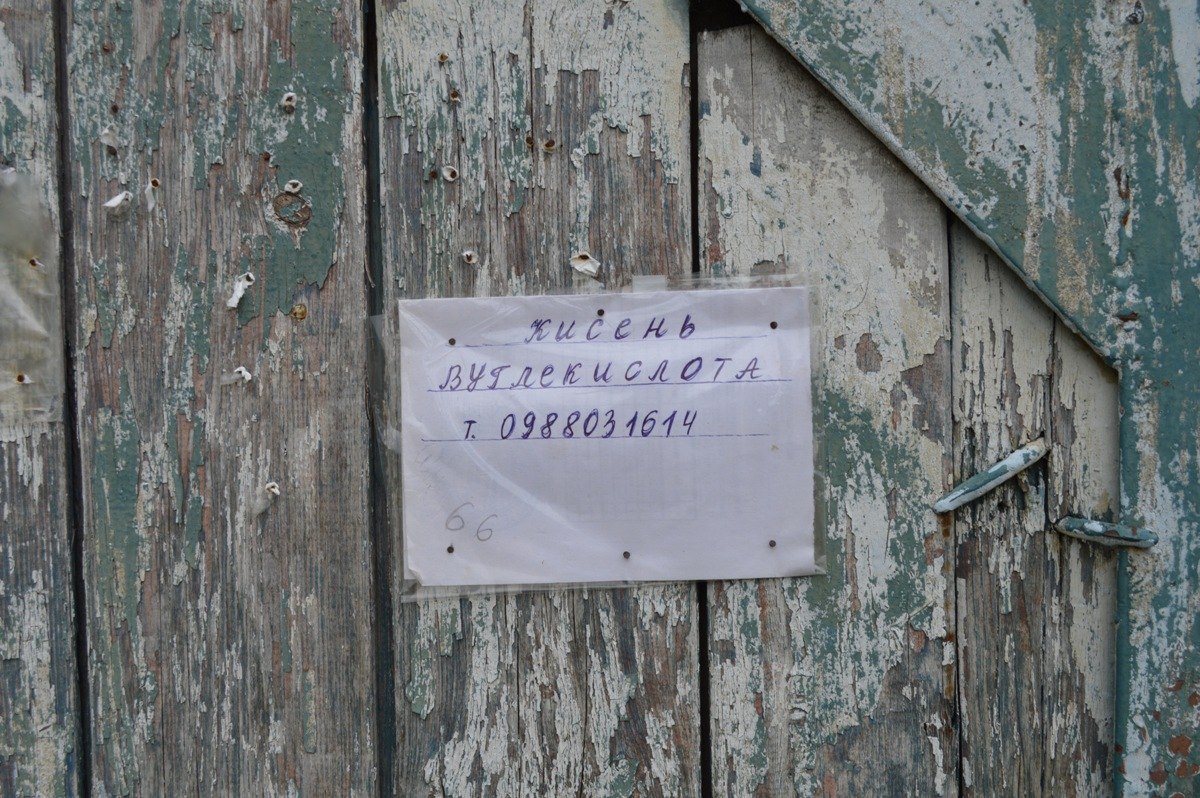 КИСЕНЬ
ВУГЛЕКИСЛОТА
Т. 0988031614
66